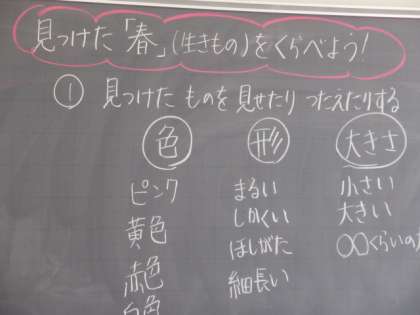 見つけた「春」(生きもの)をくらべよう!
① 見つけた ものを 見せたり つたえたりする
色 形 大きさ
ピンク まるい 小さい
黄色 しかくい 大きい
赤色 ほしがた 〇〇くらいの
白色 細長い